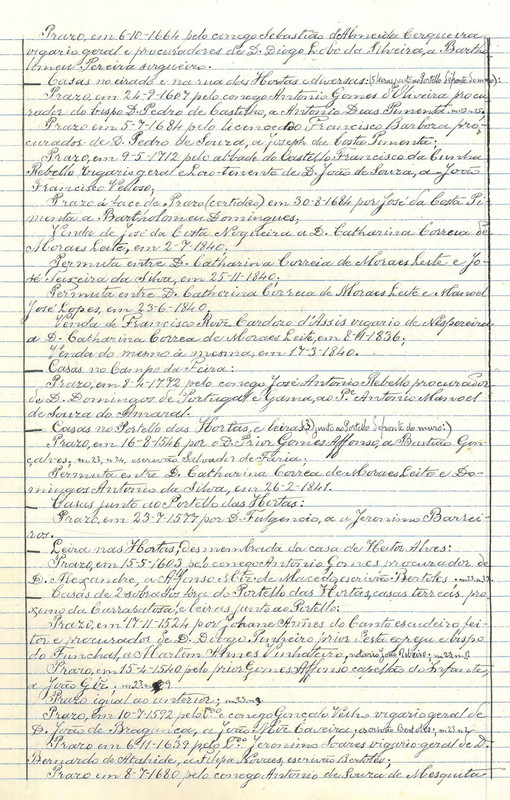 Prazo, em 6-10-1664 pelo conego Sebastião d'Almeida Cerqueira
vigario geral e procuradores de D. Diogo Lobo da Silveira, a Bartho
lomeu Pereira sirgueiro.
— Casas no eirado e na rua das Hortas e diversas: (5 leiras junto ao Portello defronte do muro):
Prazo, em 24-9-1607 pelo conego Antonio Gomes d'Oliveira procu
rador do bispo D. Pedro de Castilho, a Antonio Dias Pimenta, m.23 n.25
Prazo em 5-7-1684 pelo licenceado Francisco Barboza pro
curador de D. Pedro de Souza, a Joseph da Costa Pimenta;
Prazo, em 9-5-1712 pelo abbade do Castello Francisco da Cunha
Rebello vigario geral e loro-tenente de D. João de Souza, a João
Francisco Velloso;
Prazo á face do Prazo (certidão) em 30-8-1684 por José da Costa Pi
menta a Bartholomeu Domingues;
Venda de José da Costa Nogueira a D. Catharina Correia de
Moraes Leite, em 2-7-1840;
Permuta entre D. Catharina Correia de Moraes Leite e Jo-
sé Teixeira da Silva, em 25-11-1840.
Permuta entre D. Catherina Correia de Moraes Leite e Manoel
José Lopes, em 23-6-1840;
Venda de Francisco Cardozo d'Assis vigario de Nespereira
a D. Catharina Correa de Moraes Leite, em 8-11-1836;
Venda do mesmo à mesma, em 17-3-1840.
— Casas no Campo da Feira:
Prazo, em 8-4-1772 pelo conego José Antonio Rebello procurador
de D. Domingos de Portugal e Gama, ao Pe. Antonio Manoel
de Souza do Amaral.
— Casas no Portello das Hortas, e leiras (3) junto ao Portello defronte do muro:)
Prazo, em 16-8-1546 por o D. Prior Gomes Affonso, a Bastião Gon
çalves, m.23, n.34, escrivão Salvador de Faria.
Permuta entre D. Catharina Correa de Moraes Leite e Do-
mingos Antonio da Silva, em 26-2-1841.
— Casas junto ao Portello das Hortas:
Prazo, em 23-7-1577 por D. Fulgencio, a Jeronimo Barrei-
ros.
— Leira nas Hortas, desmembrada da casa de Heitor Alves:
Prazo, em 15-5-1603 pelo conego Antonio Gomes procurador de
D. Alexandre, a Affonso Miz de Macedo, escrivão Bertolés m.23
— Casas de 2 sobrados fóra do Portello das Hortas, casas terreas pro
ximo da Carrascosa; e leiras junto ao Portello:
Prazo, em 17-11-1524 por Johane Annes do Canto escudeiro fei
tor e procurador de D. Diogo Pinheiro prior desta egreja e bispo
do Funchal, a Martim Annes Vinhateiro, notario João Ribeiro, m.23
Prazo, em 15-4-1540 pelo prior Gomes Affonso capellão do Infante,
a João Glz; m.23 n.9.
Prazo igual ao anterior; m.23 n.9.
Prazo, em 10-7-1592 pelo conego Gonçalo Velho vigario geral de
D. João de Bragança, a João Miz Caveira, escrivão Bertolés; m.23 n.2
Prazo em 6-11-1639 pelo Jeronimo Soares vigario geral de D.
Bernardo de Atahide, a Filipa Novaes, escrivão Bertoleu;
Prazo em 8-7-1680 pelo conego Antonio de Souza de Mesquita